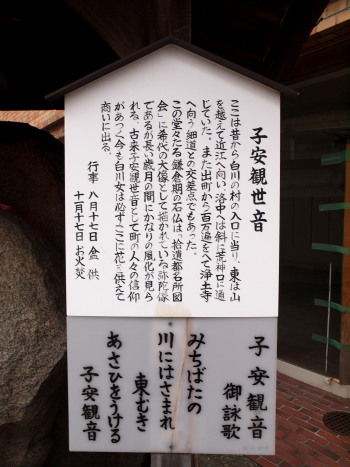 子安観世音
ここは昔から白川の村の入口に当り、東は山
を越えて近江へ向い、洛中へは斜に荒神口に通
じていた。また出町から百万遍をへて浄土寺
へ向う細道との交差点でもあった。
この堂々たる鎌倉期の石仏は「拾遺都名所図
会」に希代の大像として描かれている弥陀像
であるが長い歳月の間にかなりの風化が見ら
れる。古来子安観世音として町の人々の信仰
があつく、今も白川女は必ずここに花を供えて
商いに出る。
行事 八月十七日 盆供
十月十七日 お火焚
子安観音
御詠歌
みちばたの
川にはさまれ
東むき
あさひをうける
子安観音